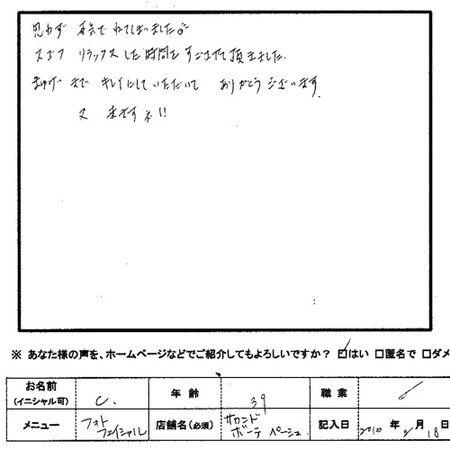 思わず ねてしまいました
リラックスした時間をすごさせて頂きました。
まゆげ まで キレイにしていただいて ありがとうございます。
又 来ますネ!!
※ あなた様の声を、ホームページなどでご紹介してもよろしいですか? ☑はい □匿名で □ダメ
お名前 (イニシャル可) C. 年齢 39 職業
メニュー フォトフェイシャル 店舗名(必須) サロンド ボーテ ペーシュ 記入日 2010年 月 18